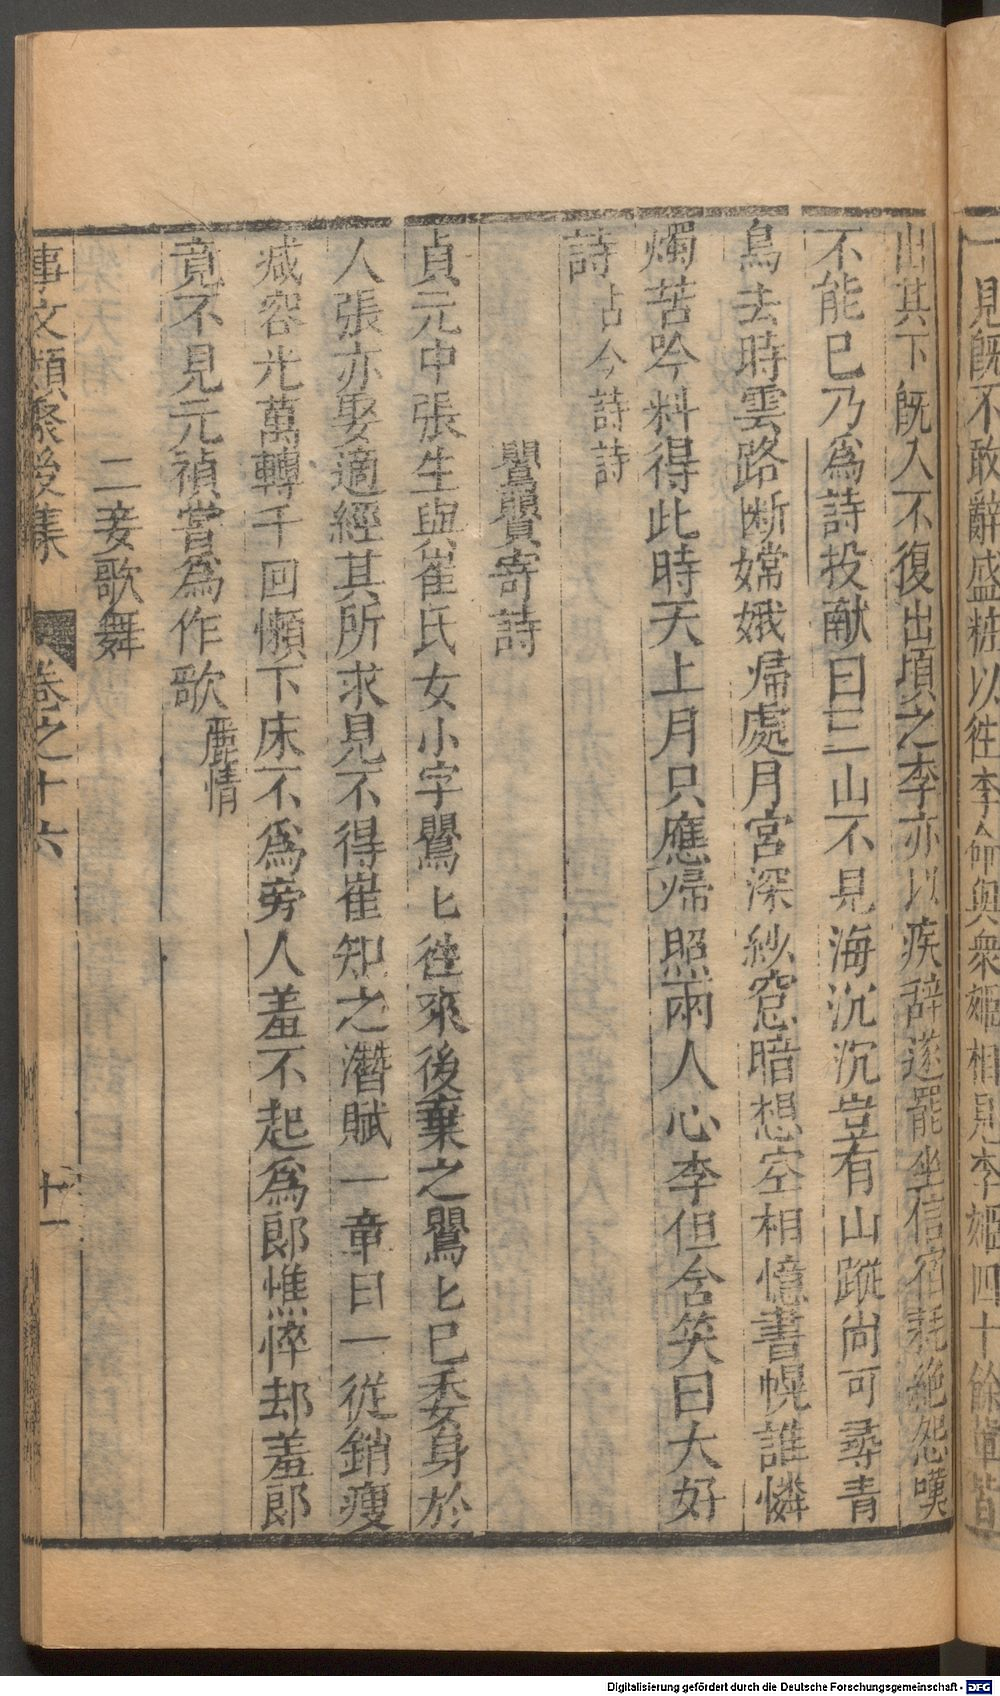 一見旣不敢辭盛粧以徃李命與衆姬相見李姬四十餘輩皆
出其下旣入不復出頃之李亦以疾辭遂罷坐信宿耗絶怨嘆
不能已乃爲詩投献曰三山不見海沉沉豈有山蹤尚可尋青
鳥去時雲路断嫦娥帰處月宮深紗窓暗想空相憶書幌誰憐
燭苦吟料得此時天上月只應帰照兩人心李但含笑曰大好
詩 古今詩詩
鸎鸎寄詩
貞元中張生與崔氏女小字鸎匕徃來後棄之鸎匕已委身於
人張亦娶適經其所求見不得崔知之潛賦一章曰一從銷瘦
减容光萬轉千回懶下床不爲旁人羞不起爲郎憔悴却羞郎
竟不見元禎嘗爲作歌 麗情
二妾歌舞
事文類聚後集 卷之十六 十一
Digitalisierung gefördert durch die Deutsche Forschungsgemeinschaft - DFG